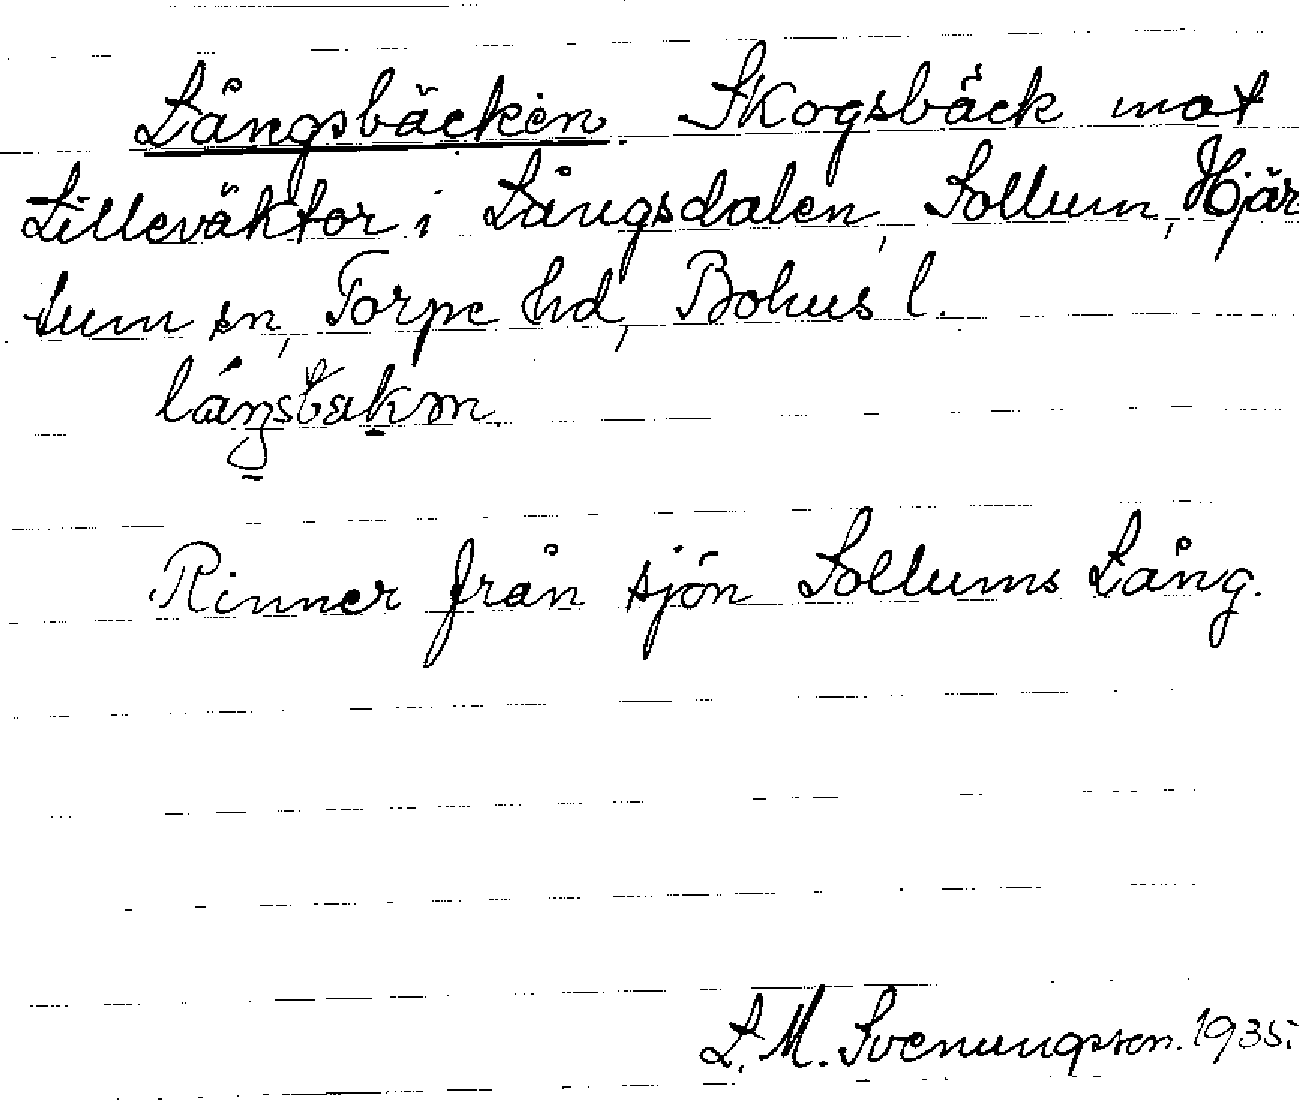 Långsbäcken. Skogsbäck mot
Lilleväktor i Långsdalen, Sollum, Hjär
tum sn, Torpe hd, Bohus l.
Rinner från sjön Sollums Lång.
L. M. Svenungsson. 1935.